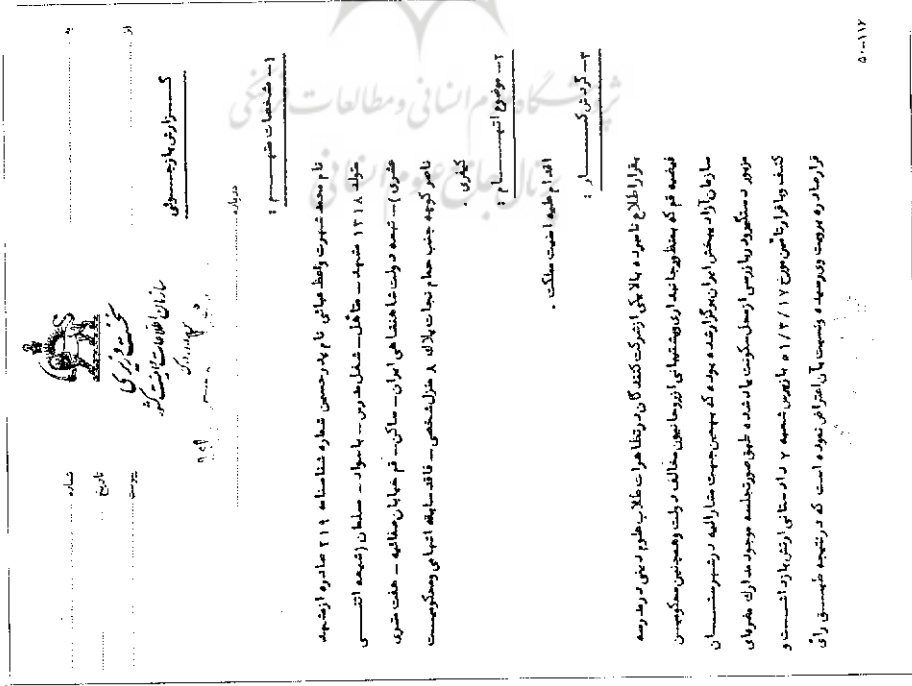 نخست وزیری
سازمان اطلاعات و امنیت کشور
از
به
شماره
تاریخ
پیوست
درباره
گزارش بازجوئی
۱- مشخصات متهم :
نام محمد شهرت واعظ عبائی نام پدر حسین شماره شناسنامه ۲۱۹ صادره از مشهد
متولد ۱۳۱۸ مشهد - متأهل - شغل مدرس - باسواد - مسلمان (شیعه اثنی
عشری) - تبعه دولت شاهنشاهی ایران - ساکن - قم خیابان صفائیه - هفت متری
ناصر کوچه جنب حمام نجات پلاک ۸ منزل شخصی - فاقد سابقه اتهامی ومحکومیت
کیفری .
۲- موضوع اتهام :
اقدام علیه امنیت مملکت .
۳- گردش کار :
بقرار اطلاع نامبرده بالا یکی از شرکت کنندگان در تظاهرات طلاب علوم دینی در مدرسه
فیضیه قم که بمنظور جانبداری وپشتیبانی از روحانیون مخالف دولت وهمچنین محکومین
سازمان آزاد یبخش ایران برگزار شده بوده که بهمین جهت مشارالیه در شهرستان
مزبور دستگیر ودر بازرسی از محل سکونت یاد شده طبق صورتجلسه موجود مدارک مضره ای
کشف وبا قرار تأمین مورخ ۵۱/۳/۱۷ بازپرس شعبه ۷ دادستانی ارتش بازداشت و
قرار صادره برویت وی رسیده ونسبت بآن اعتراض نموده است که در نتیجه طبق رأی
۵۰-۱۱۲
پژوهشگاه علوم انسانی و مطالعات فرهنگی
پرتال جامع علوم انسانی